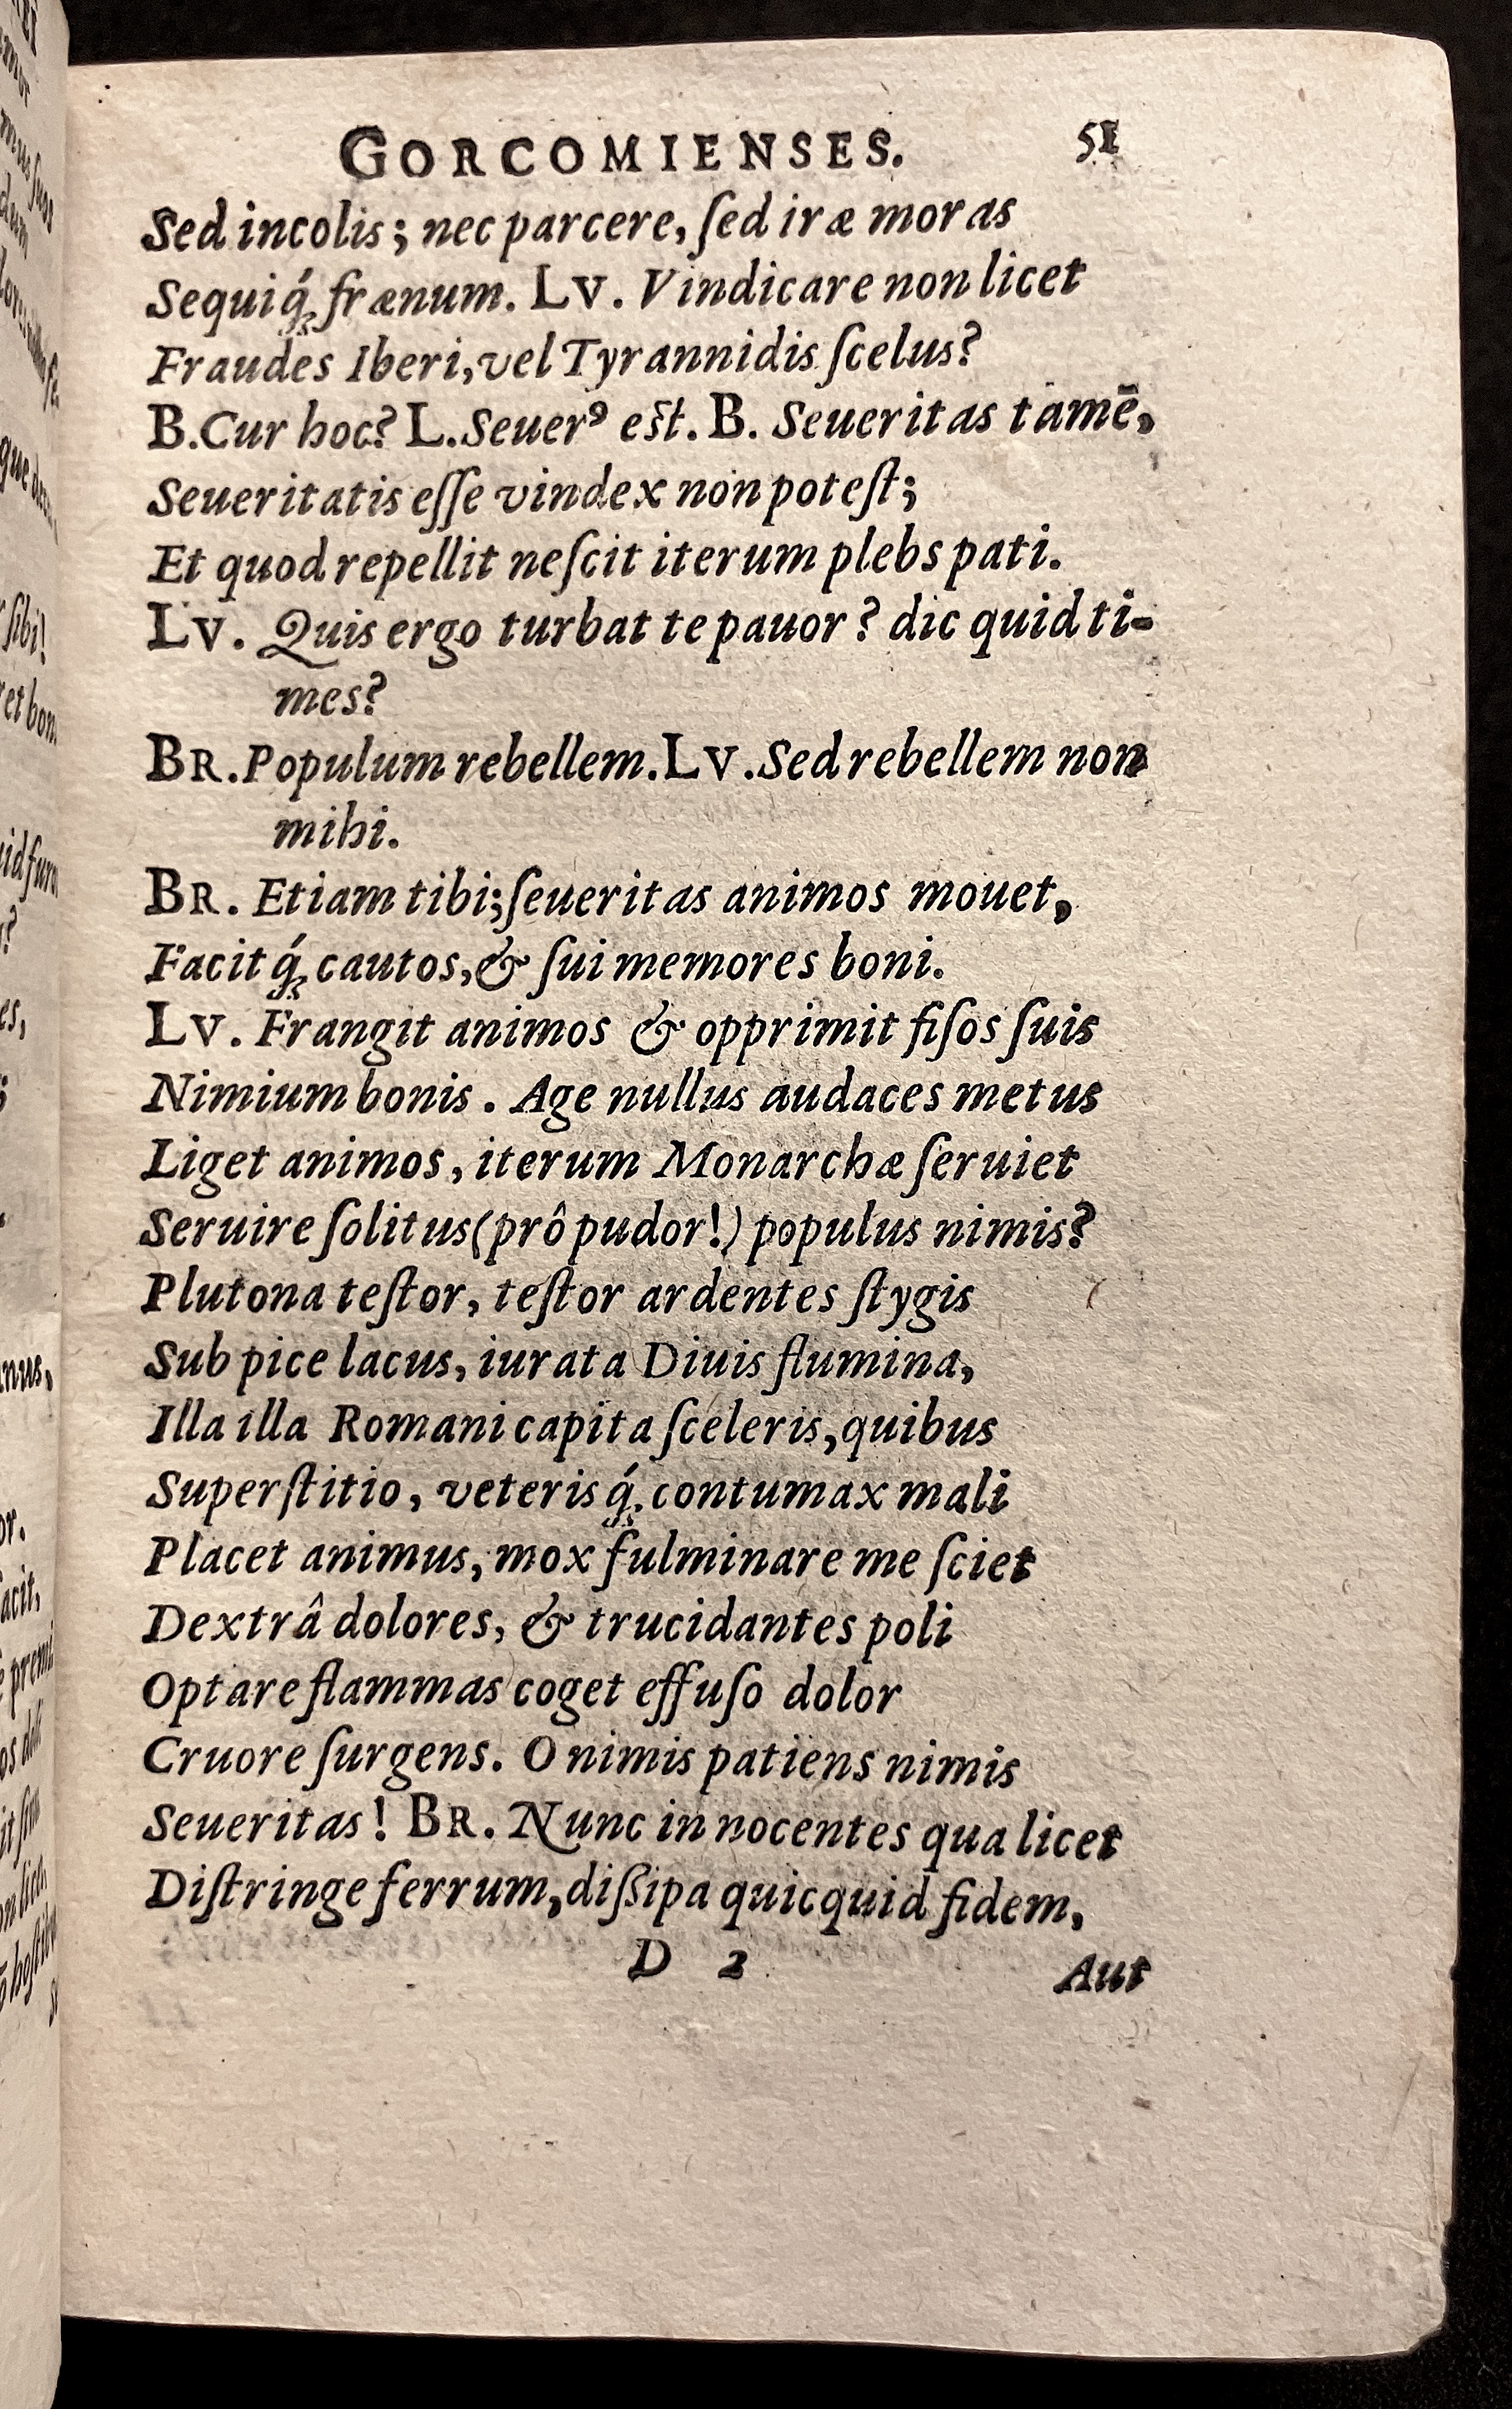 GORCOMIENSES. 51
Sed incolis; nec parcere, ſed iræ moras
Sequiq́; frænum. Lv. Vindicare non licet
Fraudes Iberi, vel Tyrannidis ſcelus?
B. Cur hoc? L. Seuerꝰ eſt. B. Seueritas tamē,
Seueritatis eſſe vindex non poteſt;
Et quod repellit neſcit iterum plebs pati.
Lv. Quis ergo turbat te pauor? dic quid ti-
mes?
BR. Populum rebellem. Lv. Sed rebellem non
mihi.
BR. Etiam tibi; ſeueritas animos mouet,
Facitq́; cautos, & ſui memores boni.
Lv. Frangit animos & opprimit fiſos ſuis
Nimium bonis. Age nullus audaces metus
Liget animos, iterum Monarchæ ſeruiet
Seruire ſolitus (prô pudor!) populus nimis?
Plutona teſtor, teſtor ardentes ſtygis
Sub pice lacus, iurata Diuis flumina,
Illa illa Romani capita ſceleris, quibus
Superſtitio, veterisq́; contumax mali
Placet animus, mox fulminare me ſciet
Dextrâ dolores, & trucidantes poli
Optare flammas coget effuſo dolor
Cruore ſurgens. O nimis patiens nimis
Seueritas! BR. Nunc in nocentes qua licet
Diſtringe ferrum, diſsipa quicquid fidem,
D 2 Aut